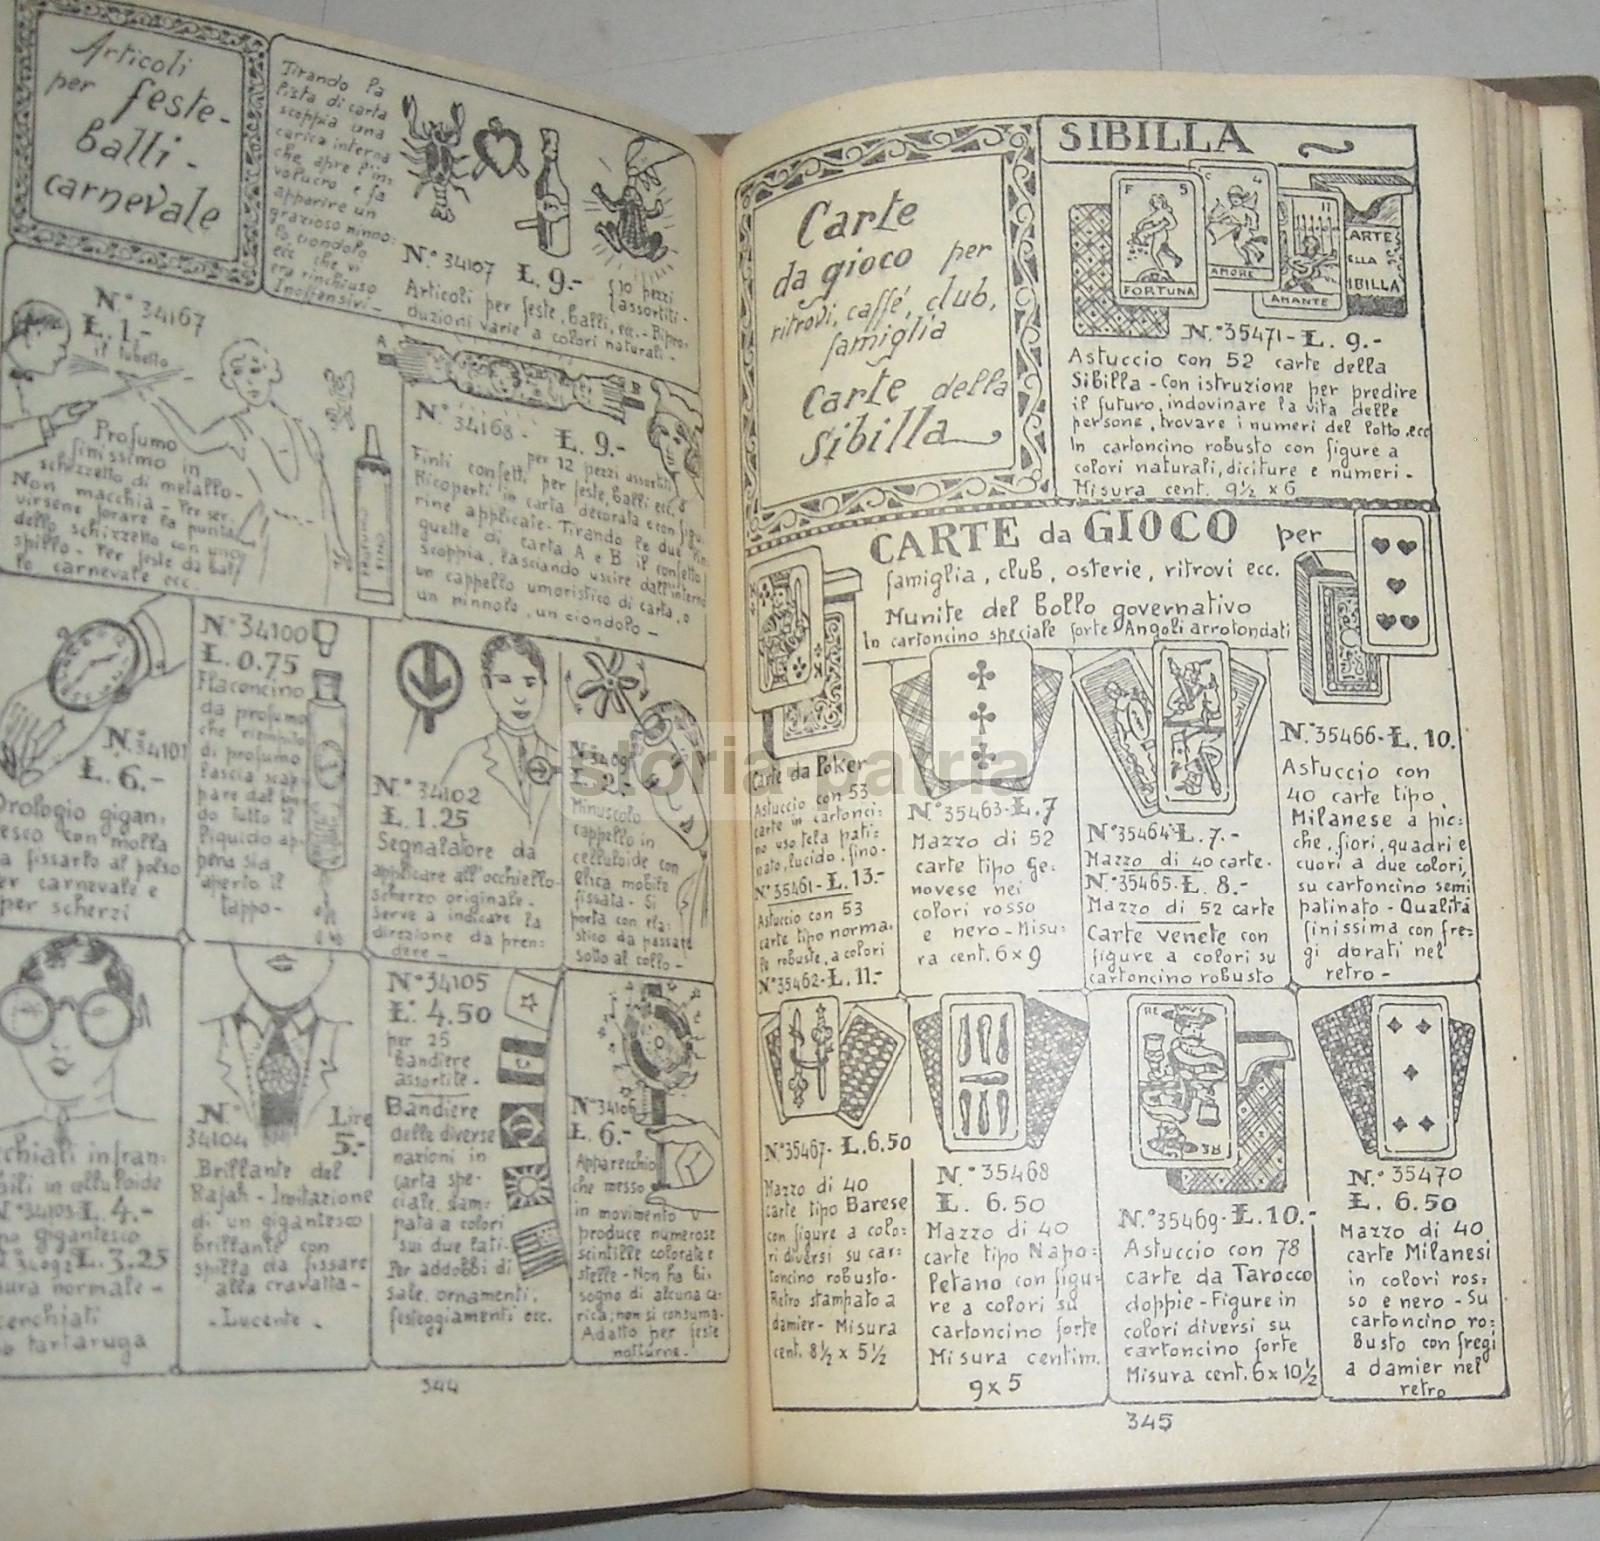 Articoli
per feste-
balli-
carnevale
Tirando la
lista di carta
scoppia una
carica interna
che apre l'in:
volucro e fa
apparire un
grazioso ninno:
lo ciondolo
ecc. che vi
era rinchiuso
Inoffensivi -
N.° 34107 L. 9.- {10 pezzi
assortiti -
Articoli per feste, balli, ecc. - Ripro:
duzioni varie a colori naturali -
N° 34167
L. 1.-
il tubetto -
Profumo
finissimo in
schizzetto di metallo -
Non macchia - Per ser:
virsene forare la punta
dello schizzetto con uno
spillo - Per feste da bal:
lo carnevale ecc.
N° 34168 - L. 9.-
per 12 pezzi assortiti
Finti confetti per feste, balli ecc.
Ricoperti in carta decorata e con figu:
rine applicate - Tirando le due lin
guette di carta A e B il confetto
scoppia, lasciando uscire dall'interno
un cappello umoristico di carta, o
un ninnolo, un ciondolo -
N.° 34101
L. 6.-
Orologio gigan:
tesco con molla
fissarlo al polso
per carnevale e
per scherzi
N° 34100
L. 0.75
Flaconcino
da profumo
che riempito
di profumo
lascia scap:
pare dal
do tutto il
liquido ap:
pena sia
aperto il
tappo -
N° 34102
L. 1.25
Segnalatore da
applicare all'occhiello
scherzo originale -
serve a indicare la
direzione da pren:
dere -
L. 2.
Minuscolo
cappello in
celluloide con
elica mobile
fissata - Si
porta con ela:
stico da passare
sotto al collo -
infran:
bili in celluloide
N° 34103 L. 4.-
gigantesco
L. 3.25
normale -
cerchiati
tartaruga
N° Lire
34104 5.-
Brillante del
Rajah - Imitazione
di un gigantesco
brillante con
spilla da fissare
alla cravatta -
- Lucente -
N° 34105
L. 4.50
per 25
bandiere
assortite -
Bandiere
delle diverse
nazioni in
carta spe:
ciale, stam:
pata a colori
sui due lati -
Per addobbi di
sale, ornamenti,
festeggiamenti ecc.
N° 34106
L. 6.-
Apparecchio
che messo
in movimento
produce numerose
scintille colorate e
stelle - Non ha bi:
sogno di alcuna ca:
rica; non si consuma -
Adatto per feste
notturne -
344
Carte
da gioco per
ritrovi, caffé, club,
famiglia
Carte della
Sibilla
SIBILLA
F 5
FORTUNA
C 4
AMORE
11
AMANTE
CARTE
ELLA
SIBILLA
N.° 35471 - L. 9.-
Astuccio con 52 carte della
Sibilla - Con istruzione per predire
il futuro, indovinare la vita delle
persone, trovare i numeri del lotto, ecc
In cartoncino robusto con figure a
colori naturali, diciture e numeri -
Misura cent. 9½ x 6
CARTE da GIOCO per
famiglia, club, osterie, ritrovi ecc.
Munite del bollo governativo
In cartoncino speciale forte - Angoli arrotondati
Carte da Poker
Astuccio con 53
carte in cartonci:
no uso tela pati:
nato, lucido, fino -
N° 35461 - L. 13.-
Astuccio con 53
carte tipo norma:
le robuste, a colori
N° 35462 - L. 11.-
N° 35463 - L. 7
Mazzo di 52
carte tipo Ge:
novese nei
colori rosso
e nero - Misu:
ra cent. 6 x 9
N° 35464 L. 7.-
Mazzo di 40 carte -
N° 35465 - L. 8.-
Mazzo di 52 carte
Carte venete con
figure a colori su
cartoncino robusto
N.° 35466 - L. 10.
Astuccio con
40 carte tipo
Milanese a pic:
che, fiori, quadri e
cuori a due colori,
su cartoncino semi
patinato - Qualità
finissima con fre:
gi dorati nel
retro -
N.° 35467 - L. 6.50
Mazzo di 40
carte tipo Barese
con figure a colo:
ri diversi su car:
toncino robusto -
Retro stampato a
damier - Misura
cent. 8½ x 5½
N.° 35468
L. 6.50
Mazzo di 40
carte tipo Napo:
letano con figu:
re a colori su
cartoncino forte
Misura centim.
9 x 5
RE
N.° 35469 - L. 10.-
Astuccio con 78
carte da Tarocco
doppie - Figure in
colori diversi su
cartoncino forte
Misura cent. 6 x 10½
N.° 35470
L. 6.50
Mazzo di 40
carte Milanesi
in colori ros:
so e nero - Su
cartoncino ro:
busto con fregi
a damier nel
retro
345
storia-patria